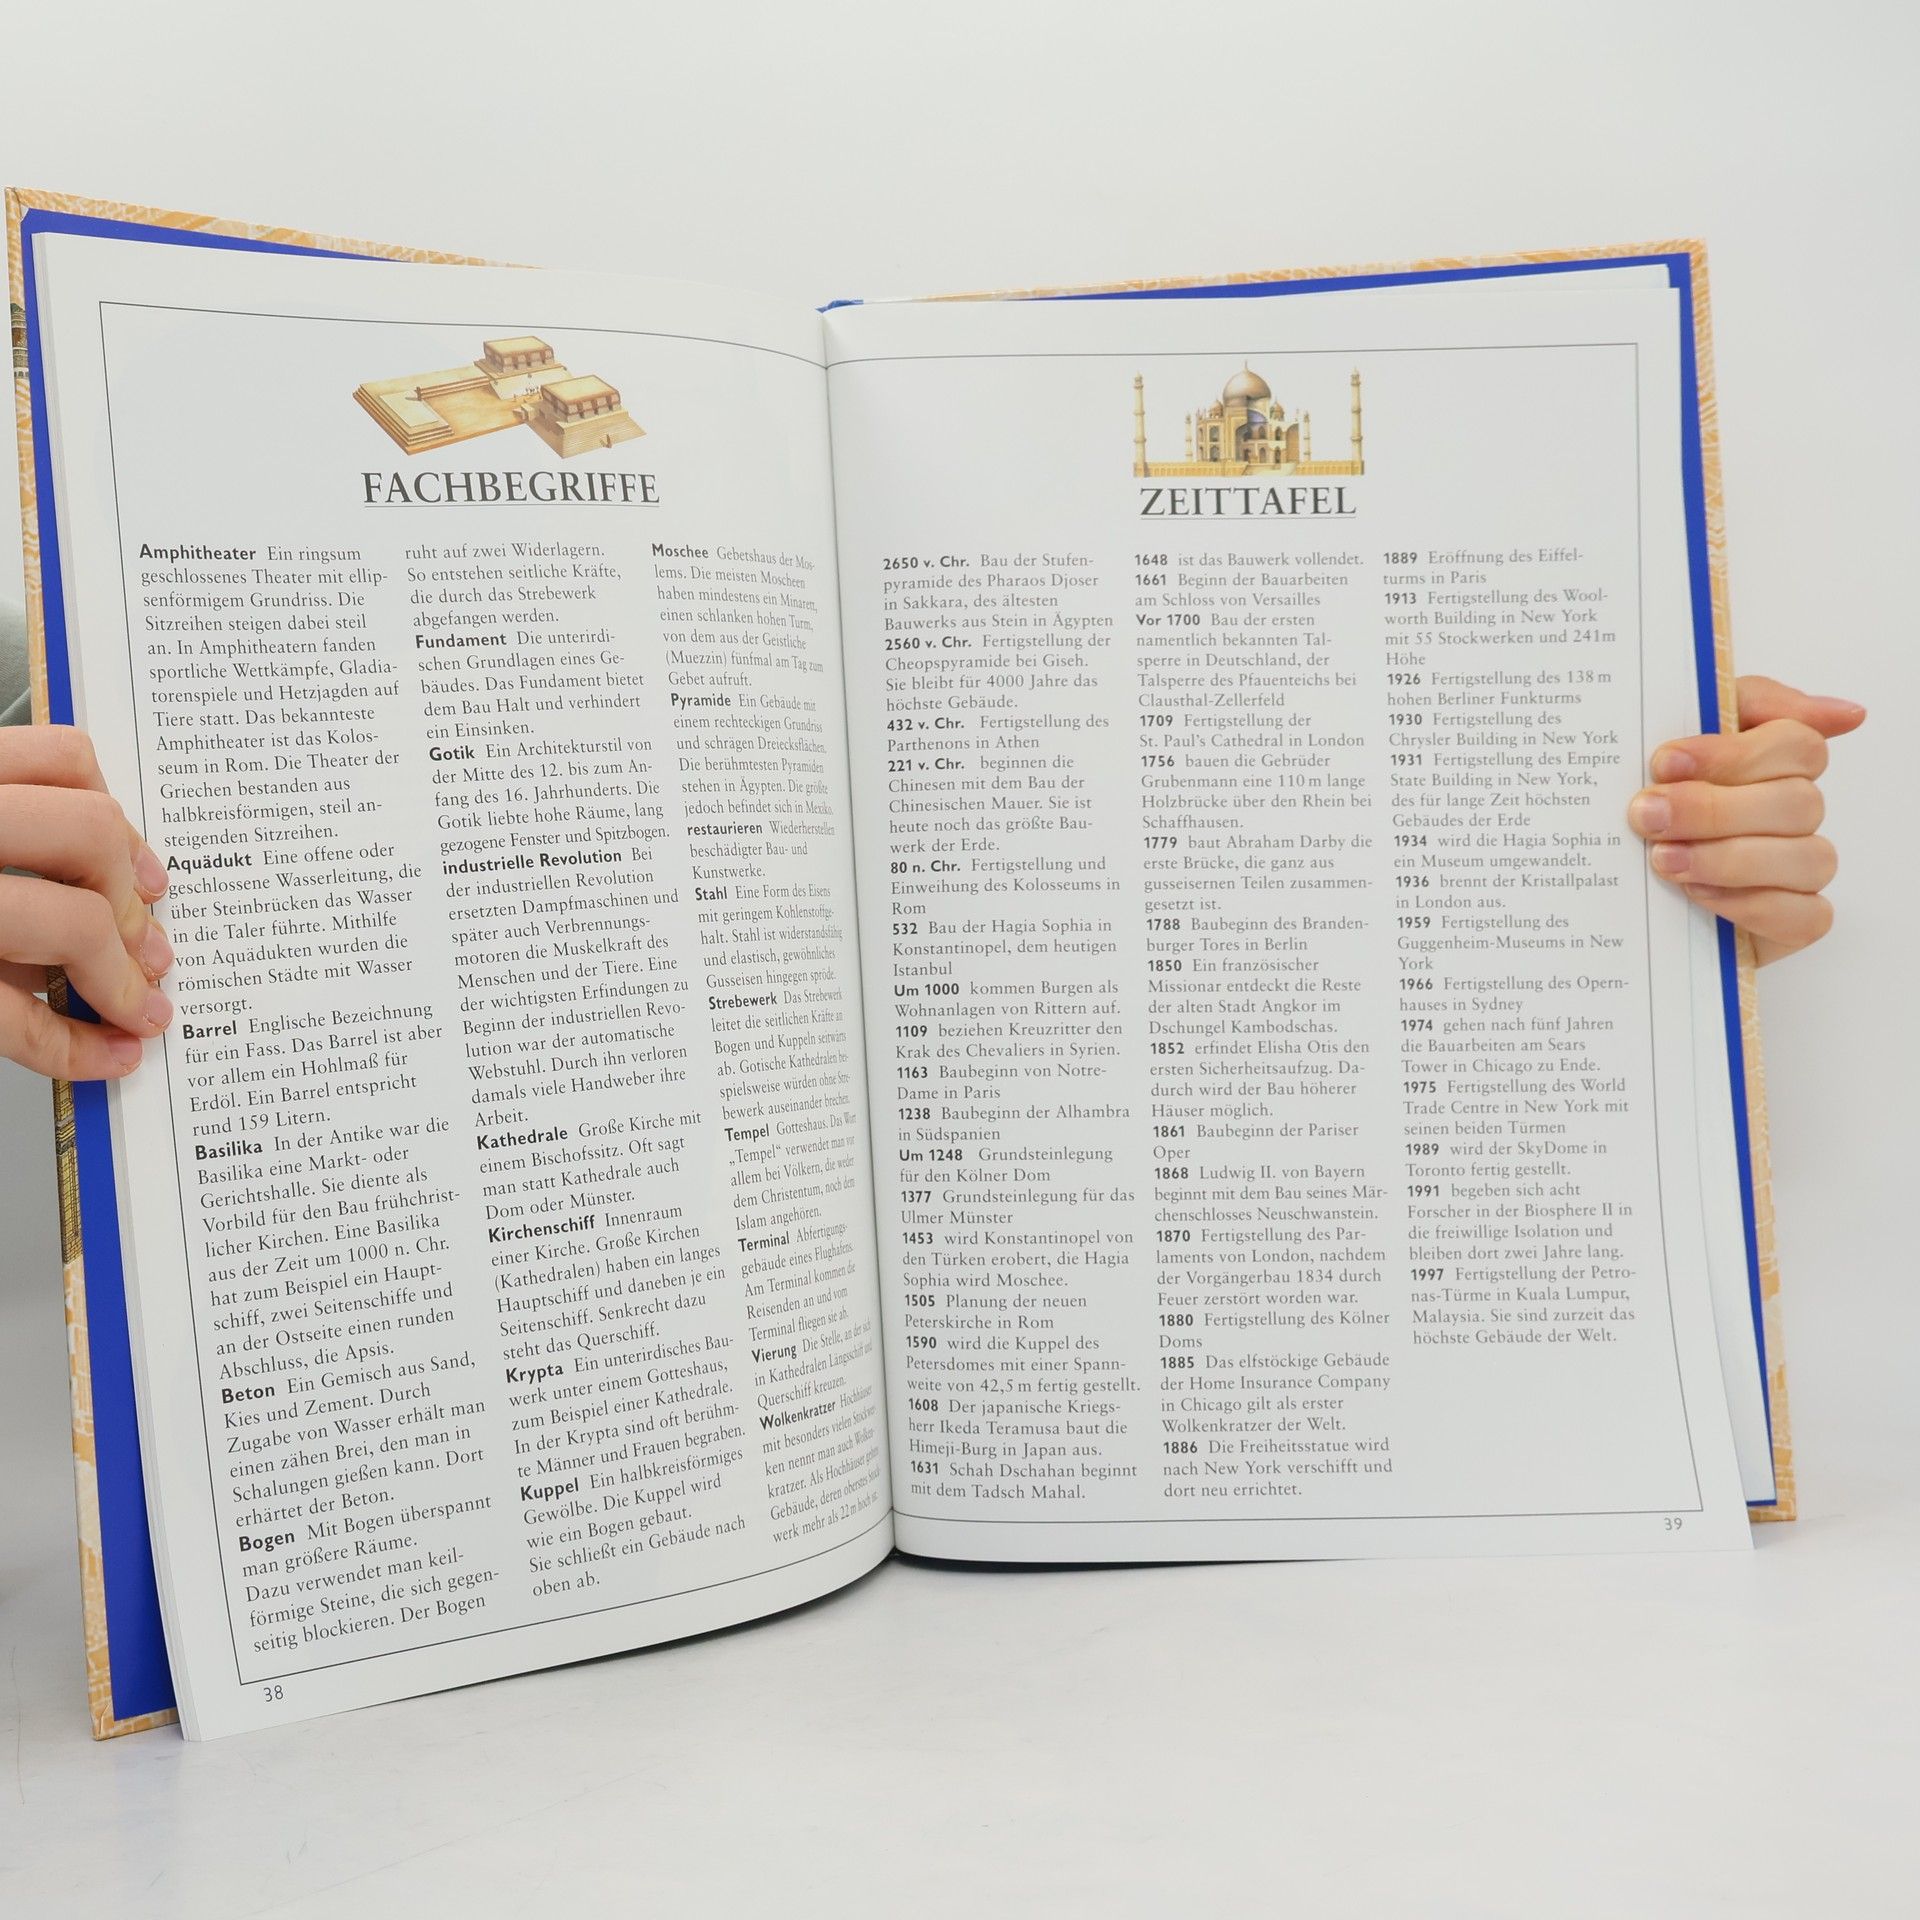 FACHBEGRIFFE
Amphitheater Ein ringsum
geschlossenes Theater mit ellip-
senförmigem Grundriss. Die
Sitzreihen steigen dabei steil
an. In Amphitheatern fanden
sportliche Wettkämpfe, Gladia-
torenspiele und Hetzjagden auf
Tiere statt. Das bekannteste
Amphitheater ist das Kolos-
seum in Rom. Die Theater der
Griechen bestanden aus
halbkreisförmigen, steil an-
steigenden Sitzreihen.
Aquädukt Eine offene oder
geschlossene Wasserleitung, die
über Steinbrücken das Wasser
in die Taler führte. Mithilfe
von Aquädukten wurden die
römischen Städte mit Wasser
versorgt.
Barrel Englische Bezeichnung
für ein Fass. Das Barrel ist aber
vor allem ein Hohlmaß für
Erdöl. Ein Barrel entspricht
rund 159 Litern.
Basilika In der Antike war die
Basilika eine Markt- oder
Gerichtshalle. Sie diente als
Vorbild für den Bau frühchrist-
licher Kirchen. Eine Basilika
aus der Zeit um 1000 n. Chr.
hat zum Beispiel ein Haupt-
schiff, zwei Seitenschiffe und
an der Ostseite einen runden
Abschluss, die Apsis.
Beton Ein Gemisch aus Sand,
Kies und Zement. Durch
Zugabe von Wasser erhält man
einen zähen Brei, den man in
Schalungen gießen kann. Dort
erhärtet der Beton.
Bogen Mit Bogen überspannt
man größere Räume.
Dazu verwendet man keil-
förmige Steine, die sich gegen-
seitig blockieren. Der Bogen
ruht auf zwei Widerlagern.
So entstehen seitliche Kräfte,
die durch das Strebewerk
abgefangen werden.
Fundament Die unterirdi-
schen Grundlagen eines Ge-
bäudes. Das Fundament bietet
dem Bau Halt und verhindert
ein Einsinken.
Gotik Ein Architekturstil von
der Mitte des 12. bis zum An-
fang des 16. Jahrhunderts. Die
Gotik liebte hohe Räume, lang
gezogene Fenster und Spitzbogen.
industrielle Revolution Bei
der industriellen Revolution
ersetzten Dampfmaschinen und
später auch Verbrennungs-
motoren die Muskelkraft des
Menschen und der Tiere. Eine
der wichtigsten Erfindungen zu
Beginn der industriellen Revo-
lution war der automatische
Webstuhl. Durch ihn verloren
damals viele Handweber ihre
Arbeit.
Kathedrale Große Kirche mit
einem Bischofssitz. Oft sagt
man statt Kathedrale auch
Dom oder Münster.
Kirchenschiff Innenraum
einer Kirche. Große Kirchen
(Kathedralen) haben ein langes
Hauptschiff und daneben je ein
Seitenschiff. Senkrecht dazu
steht das Querschiff.
Krypta Ein unterirdisches Bau-
werk unter einem Gotteshaus,
zum Beispiel einer Kathedrale.
In der Krypta sind oft berühm-
te Männer und Frauen begraben.
Kuppel Ein halbkreisförmiges
Gewölbe. Die Kuppel wird
wie ein Bogen gebaut.
Sie schließt ein Gebäude nach
oben ab.
Moschee Gebetshaus der Mos-
lems. Die meisten Moscheen
haben mindestens ein Minarett,
einen schlanken hohen Turm,
von dem aus der Geistliche
(Muezzin) fünfmal am Tag zum
Gebet aufruft.
Pyramide Ein Gebäude mit
einem rechteckigen Grundriss
und schrägen Dreiecksflächen.
Die berühmtesten Pyramiden
stehen in Ägypten. Die größte
jedoch befindet sich in Mexiko.
restaurieren Wiederherstellen
beschädigter Bau- und
Kunstwerke.
Stahl Eine Form des Eisens
mit geringem Kohlenstoffge-
halt. Stahl ist widerstandsfähig
und elastisch, gewöhnliches
Gusseisen hingegen spröde.
Strebewerk Das Strebewerk
leitet die seitlichen Kräfte an
Bogen und Kuppeln seitwärts
ab. Gotische Kathedralen bei-
spielsweise würden ohne Stre-
bewerk auseinander brechen.
Tempel Gotteshaus. Das Wort
„Tempel“ verwendet man vor
allem bei Völkern, die weder
dem Christentum, noch dem
Islam angehören.
Terminal Abfertigungs-
gebäude eines Flughafens.
Am Terminal kommen die
Reisenden an und vom
Terminal fliegen sie ab.
Vierung Die Stelle, an der sich
in Kathedralen Längsschiff und
Querschiff kreuzen.
Wolkenkratzer Hochhäuser
mit besonders vielen Stockwer-
ken nennt man auch Wolken-
kratzer. Als Hochhäuser gelten
Gebäude, deren oberstes Stock-
werk mehr als 22 m hoch ist.
38
ZEITTAFEL
2650 v. Chr. Bau der Stufen-
pyramide des Pharaos Djoser
in Sakkara, des ältesten
Bauwerks aus Stein in Ägypten
2560 v. Chr. Fertigstellung der
Cheopspyramide bei Giseh.
Sie bleibt für 4000 Jahre das
höchste Gebäude.
432 v. Chr. Fertigstellung des
Parthenons in Athen
221 v. Chr. beginnen die
Chinesen mit dem Bau der
Chinesischen Mauer. Sie ist
heute noch das größte Bau-
werk der Erde.
80 n. Chr. Fertigstellung und
Einweihung des Kolosseums in
Rom
532 Bau der Hagia Sophia in
Konstantinopel, dem heutigen
Istanbul
Um 1000 kommen Burgen als
Wohnanlagen von Rittern auf.
1109 beziehen Kreuzritter den
Krak des Chevaliers in Syrien.
1163 Baubeginn von Notre-
Dame in Paris
1238 Baubeginn der Alhambra
in Südspanien
Um 1248 Grundsteinlegung
für den Kölner Dom
1377 Grundsteinlegung für das
Ulmer Münster
1453 wird Konstantinopel von
den Türken erobert, die Hagia
Sophia wird Moschee.
1505 Planung der neuen
Peterskirche in Rom
1590 wird die Kuppel des
Petersdomes mit einer Spann-
weite von 42,5 m fertig gestellt.
1608 Der japanische Kriegs-
herr Ikeda Teramusa baut die
Himeji-Burg in Japan aus.
1631 Schah Dschahan beginnt
mit dem Tadsch Mahal.
1648 ist das Bauwerk vollendet.
1661 Beginn der Bauarbeiten
am Schloss von Versailles
Vor 1700 Bau der ersten
namentlich bekannten Tal-
sperre in Deutschland, der
Talsperre des Pfauenteichs bei
Clausthal-Zellerfeld
1709 Fertigstellung der
St. Paul's Cathedral in London
1756 bauen die Gebrüder
Grubenmann eine 110 m lange
Holzbrücke über den Rhein bei
Schaffhausen.
1779 baut Abraham Darby die
erste Brücke, die ganz aus
gusseisernen Teilen zusammen-
gesetzt ist.
1788 Baubeginn des Branden-
burger Tores in Berlin
1850 Ein französischer
Missionar entdeckt die Reste
der alten Stadt Angkor im
Dschungel Kambodschas.
1852 erfindet Elisha Otis den
ersten Sicherheitsaufzug. Da-
durch wird der Bau höherer
Häuser möglich.
1861 Baubeginn der Pariser
Oper
1868 Ludwig II. von Bayern
beginnt mit dem Bau seines Mär-
chenschlosses Neuschwanstein.
1870 Fertigstellung des Par-
laments von London, nachdem
der Vorgängerbau 1834 durch
Feuer zerstört worden war.
1880 Fertigstellung des Kölner
Doms
1885 Das elfstöckige Gebäude
der Home Insurance Company
in Chicago gilt als erster
Wolkenkratzer der Welt.
1886 Die Freiheitsstatue wird
nach New York verschifft und
dort neu errichtet.
1889 Eröffnung des Eiffel-
turms in Paris
1913 Fertigstellung des Wool-
worth Building in New York
mit 55 Stockwerken und 241m
Höhe
1926 Fertigstellung des 138 m
hohen Berliner Funkturms
1930 Fertigstellung des
Chrysler Building in New York
1931 Fertigstellung des Empire
State Building in New York,
des für lange Zeit höchsten
Gebäudes der Erde
1934 wird die Hagia Sophia in
ein Museum umgewandelt.
1936 brennt der Kristallpalast
in London aus.
1959 Fertigstellung des
Guggenheim-Museums in New
York
1966 Fertigstellung des Opern-
hauses in Sydney
1974 gehen nach fünf Jahren
die Bauarbeiten am Sears
Tower in Chicago zu Ende.
1975 Fertigstellung des World
Trade Centre in New York mit
seinen beiden Türmen
1989 wird der SkyDome in
Toronto fertig gestellt.
1991 begeben sich acht
Forscher in der Biosphere II in
die freiwillige Isolation und
bleiben dort zwei Jahre lang.
1997 Fertigstellung der Petro-
nas-Türme in Kuala Lumpur,
Malaysia. Sie sind zurzeit das
höchste Gebäude der Welt.
39